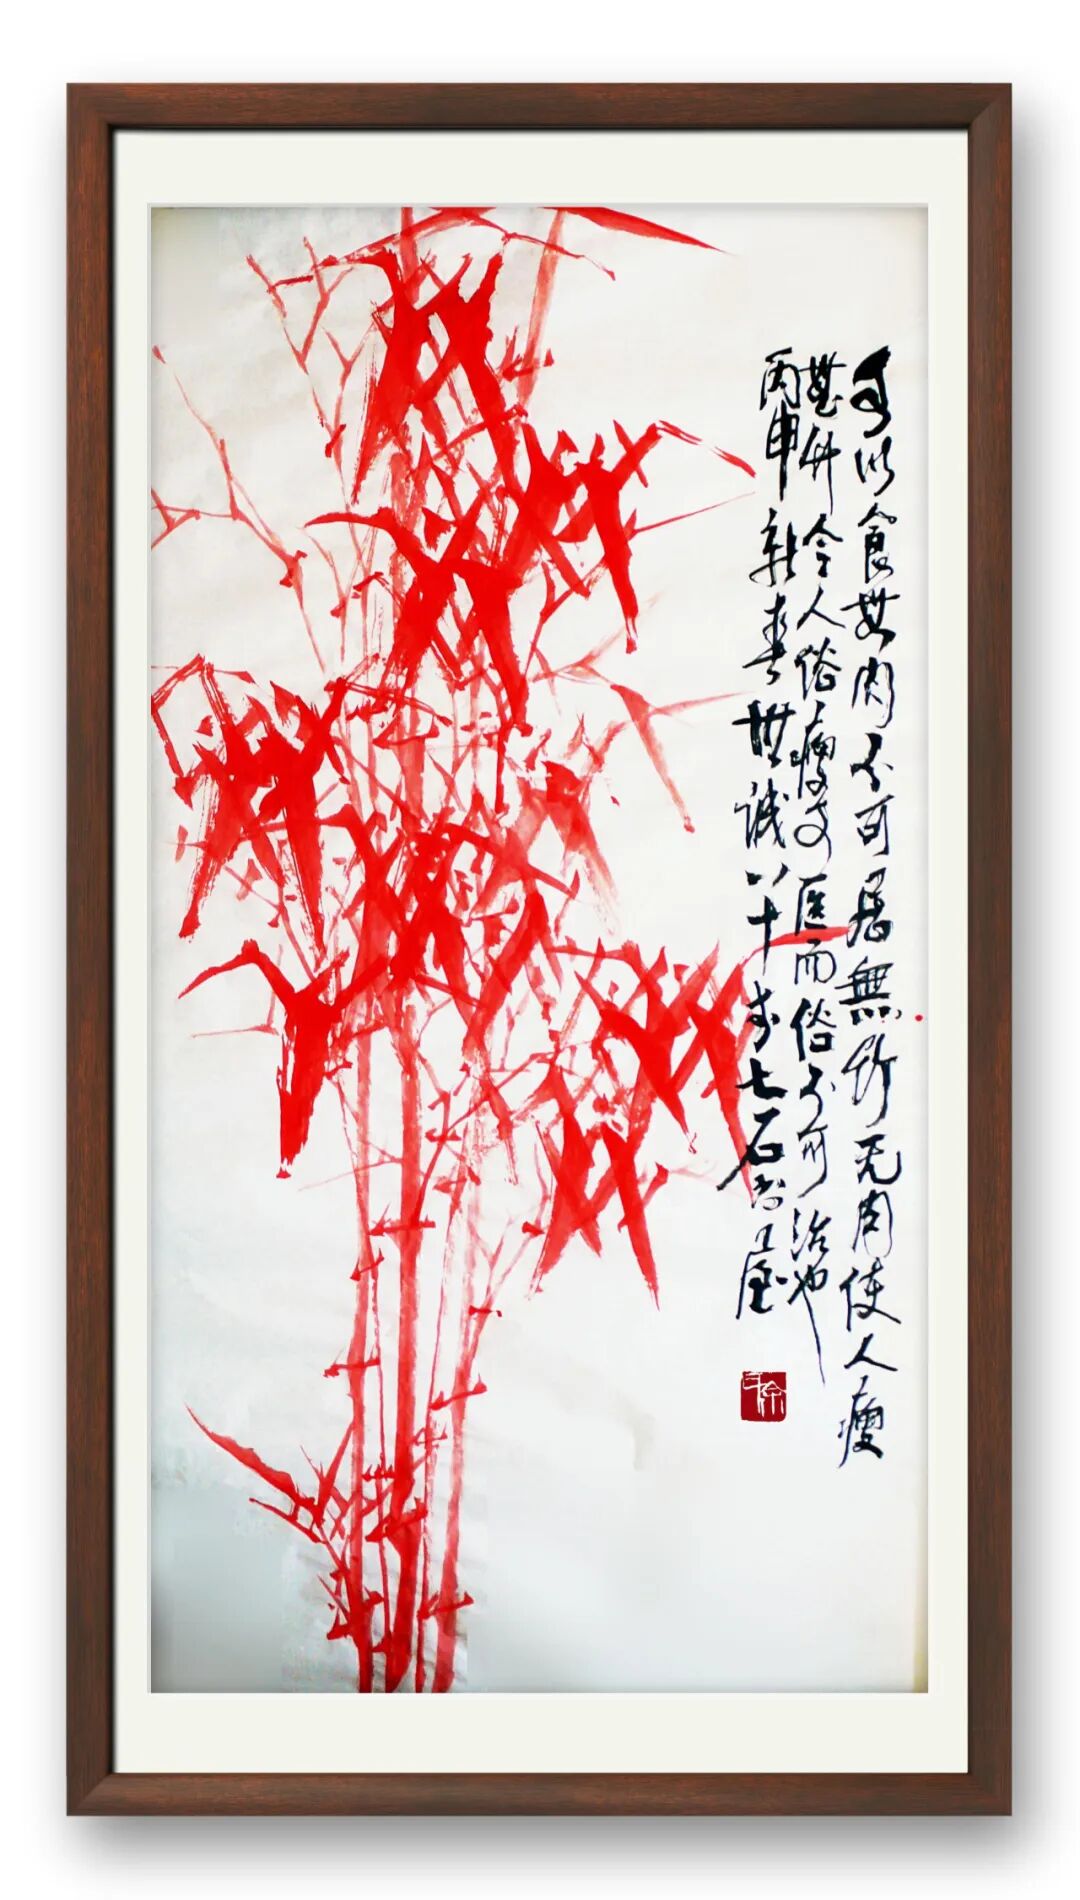 可以食無肉不可居無竹无肉使人瘦
無竹令人俗瘦可医而俗不可治也
丙申新春世诚八十岁七石书屋